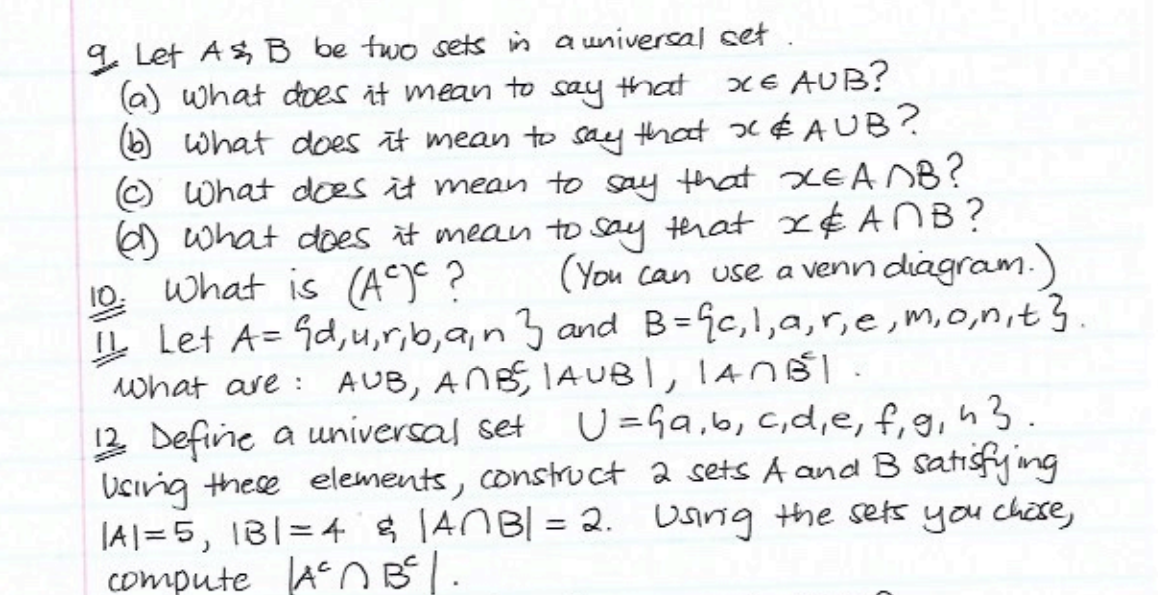 9. Let A & B be two sets in a universal set.
(a) What does it mean to say that x ∈ A∪B?
(b) What does it mean to say that x ∉ A∪B?
(c) What does it mean to say that x ∈ A∩B?
(d) What does it mean to say that x ∉ A∩B?
10. What is (Aᶜ)ᶜ? (You can use a venn diagram.)
11. Let A = {d,u,r,b,a,n} and B = {c,l,a,r,e,m,o,n,t}.
What are: A∪B, A∩Bᶜ, |A∪B|, |A∩Bᶜ|.
12. Define a universal set U = {a,b,c,d,e,f,g,h}.
Using these elements, construct 2 sets A and B satisfying
|A|=5, |B|=4 & |A∩B| = 2. Using the sets you chose,
compute |Aᶜ∩Bᶜ|.